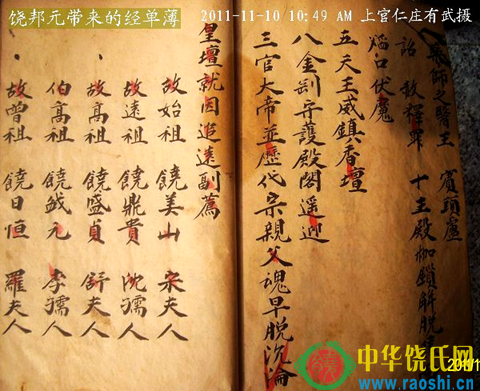 饶邦元带来的经单薄 2011-11-10 10:49 AM 上官仁庄有武摄
之醫王 賓頭盧
詔赦釋罪 十王殿枷鎖解脫
焰口伏魔
五天王威鎮香壇
八金剛守護殿閣遥迎
三官大帝並歷代宗親父魂早脫沉淪
皇壇就因追遠副薦
故始祖 饒美山 宋夫人
故遠祖 饒鼎貴 沈孺人
故高祖 饒盛貞 舒夫人
伯高祖 饒元 李孺人
故曾祖 饒日恒 羅夫人
中华饶氏网
www.raoshi.cn
2011/1